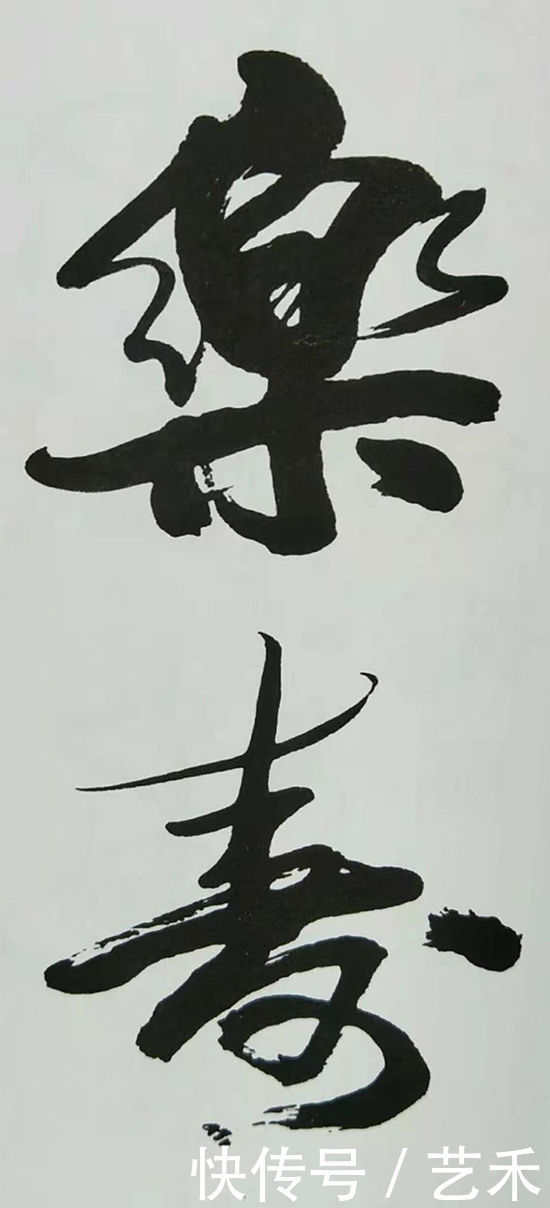 樂
寿
快传号 / 艺禾